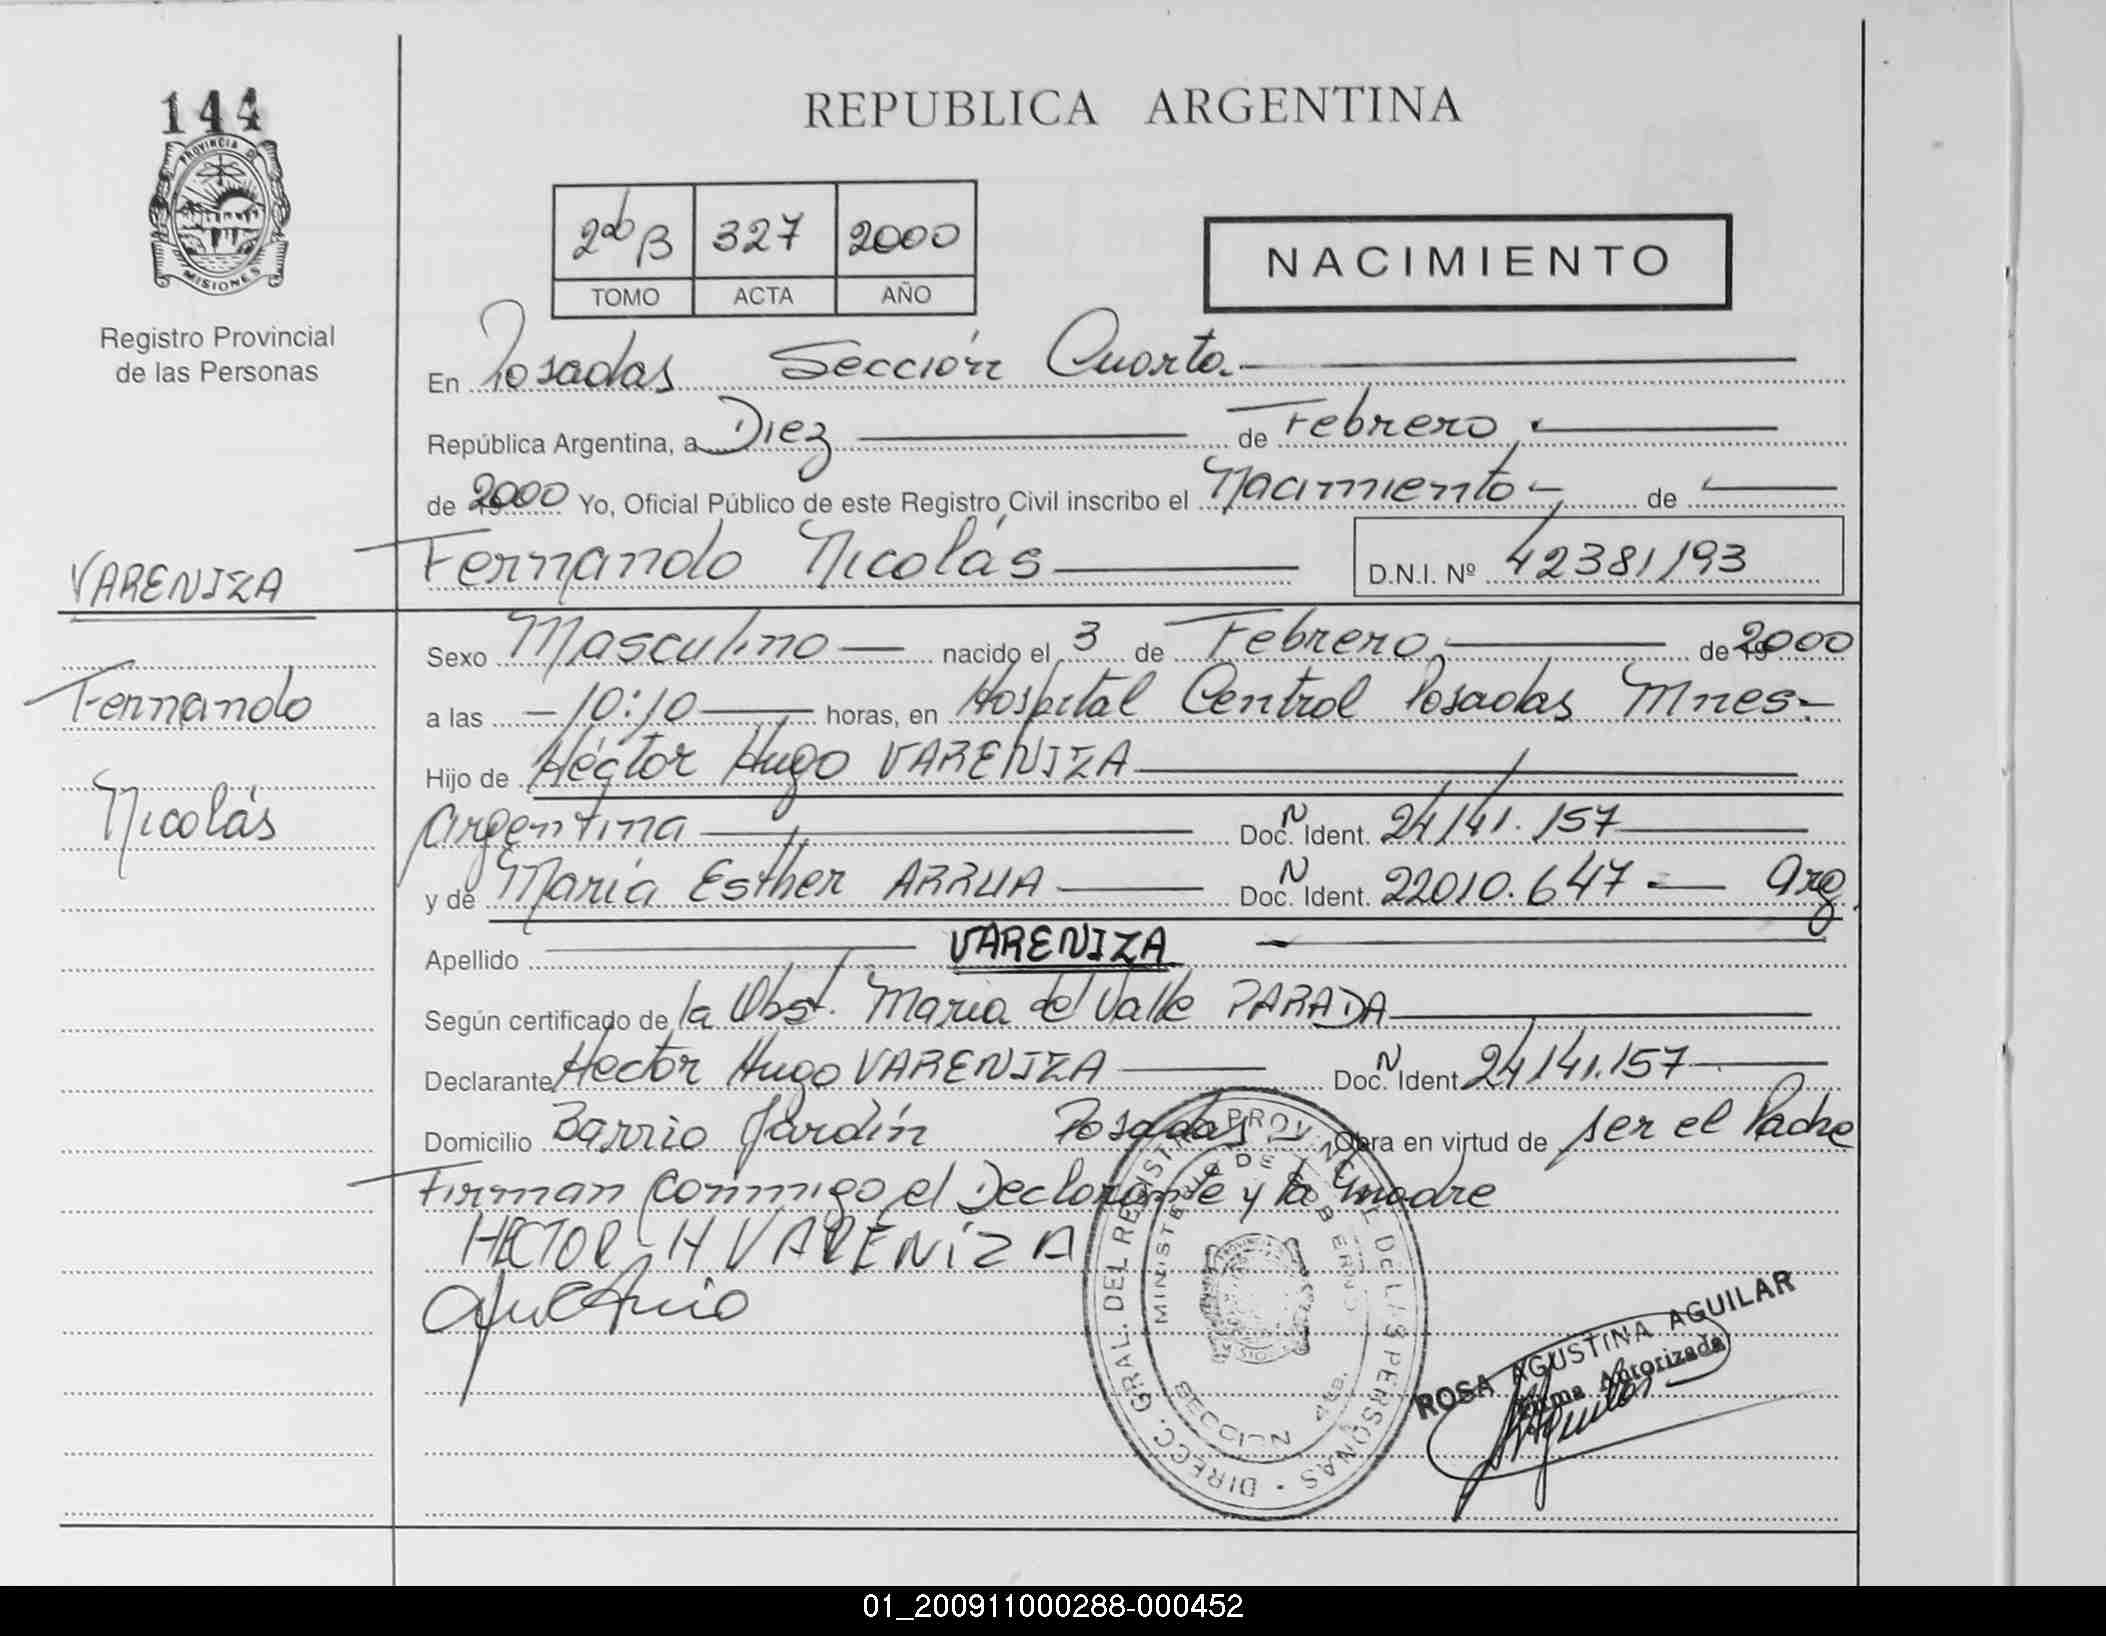 144
PROVINCIA DE
MISIONES
Registro Provincial
de las Personas
REPUBLICA ARGENTINA
2do B 327 2000
TOMO ACTA AÑO
NACIMIENTO
En Posadas Sección Cuarta.
República Argentina, a Diez de Febrero
de 2000 Yo, Oficial Público de este Registro Civil inscribo el Nacimiento de
VARENIZA
Fernando Nicolás D.N.I. Nº 42381193
Sexo Masculino nacido el 3 de Febrero de 2000
Fernando
a las 10:10 horas, en Hospital Central Posadas Mnes.
Hijo de Héctor Hugo VARENIZA
Nicolás
Argentina Doc. N Ident. 24141.157
y de María Esther ARRUA Doc. N Ident. 22010.647 Arg.
Apellido VARENIZA
Según certificado de la Obst. Maria del Valle PARADA
Declarante Hector Hugo VARENIZA Doc. N Ident 24141.157
Domicilio Barrio Jardín Posadas Obra en virtud de ser el Padre
Firman conmigo el Declarante y la madre
HECTOR H VARENIZA
DIRECC. GRAL. DEL REGISTRO PROVINCIAL DE LAS PERSONAS
MINISTERIO DE GOBIERNO
SECCION 4ta.
ROSA AGUSTINA AGUILAR
Firma Autorizada
01_200911000288-000452